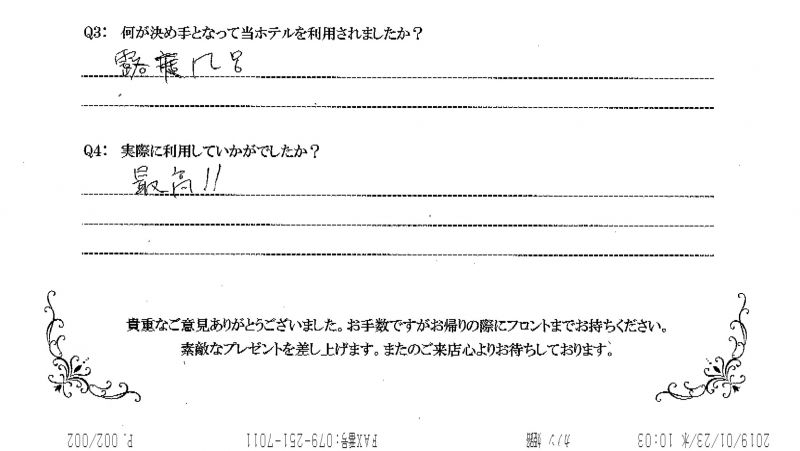 Q3: 何が決め手となって当ホテルを利用されましたか?
露天風呂
Q4: 実際に利用していかがでしたか?
最高!!
貴重なご意見ありがとうございました。お手数ですがお帰りの際にフロントまでお持ちください。
素敵なプレゼントを差し上げます。またのご来店心よりお待ちしております。
2019/01/23/水 10:03 カノン 姫路 FAX番号:079-251-7011 P. 002/002